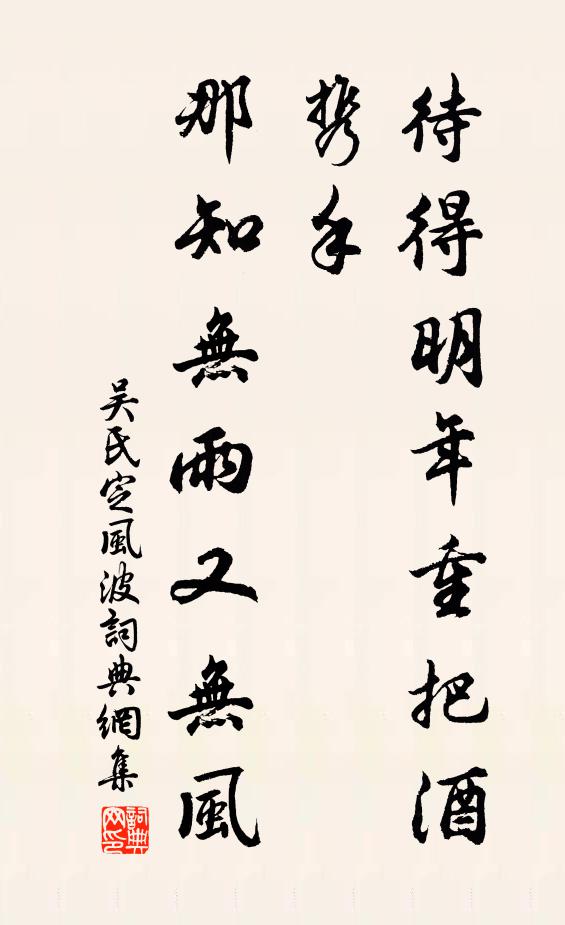 待得明年重把酒
携手
那知無雨又無風
吴氏定風波詞典網集
詞典
网印